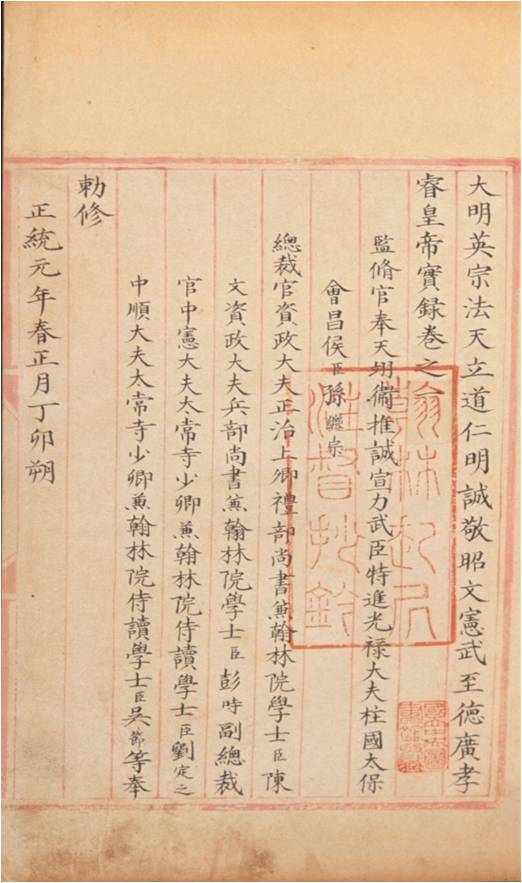 大明英宗法天立道仁明誠敬昭文憲武至德廣孝
睿皇帝實錄卷之一
監脩官奉天翊衛推誠宣力武臣特進光祿大夫柱國太保
會昌侯臣孫繼宗
總裁官資政大夫正治上卿禮部尚書兼翰林院學士臣陳
文資政大夫兵部尚書兼翰林院學士臣彭時副總裁
官中憲大夫太常寺少卿兼翰林院侍讀學士臣劉定之
中順大夫太常寺少卿兼翰林院侍讀學士臣吳節等奉
勅修
正統元年春正月丁卯朔